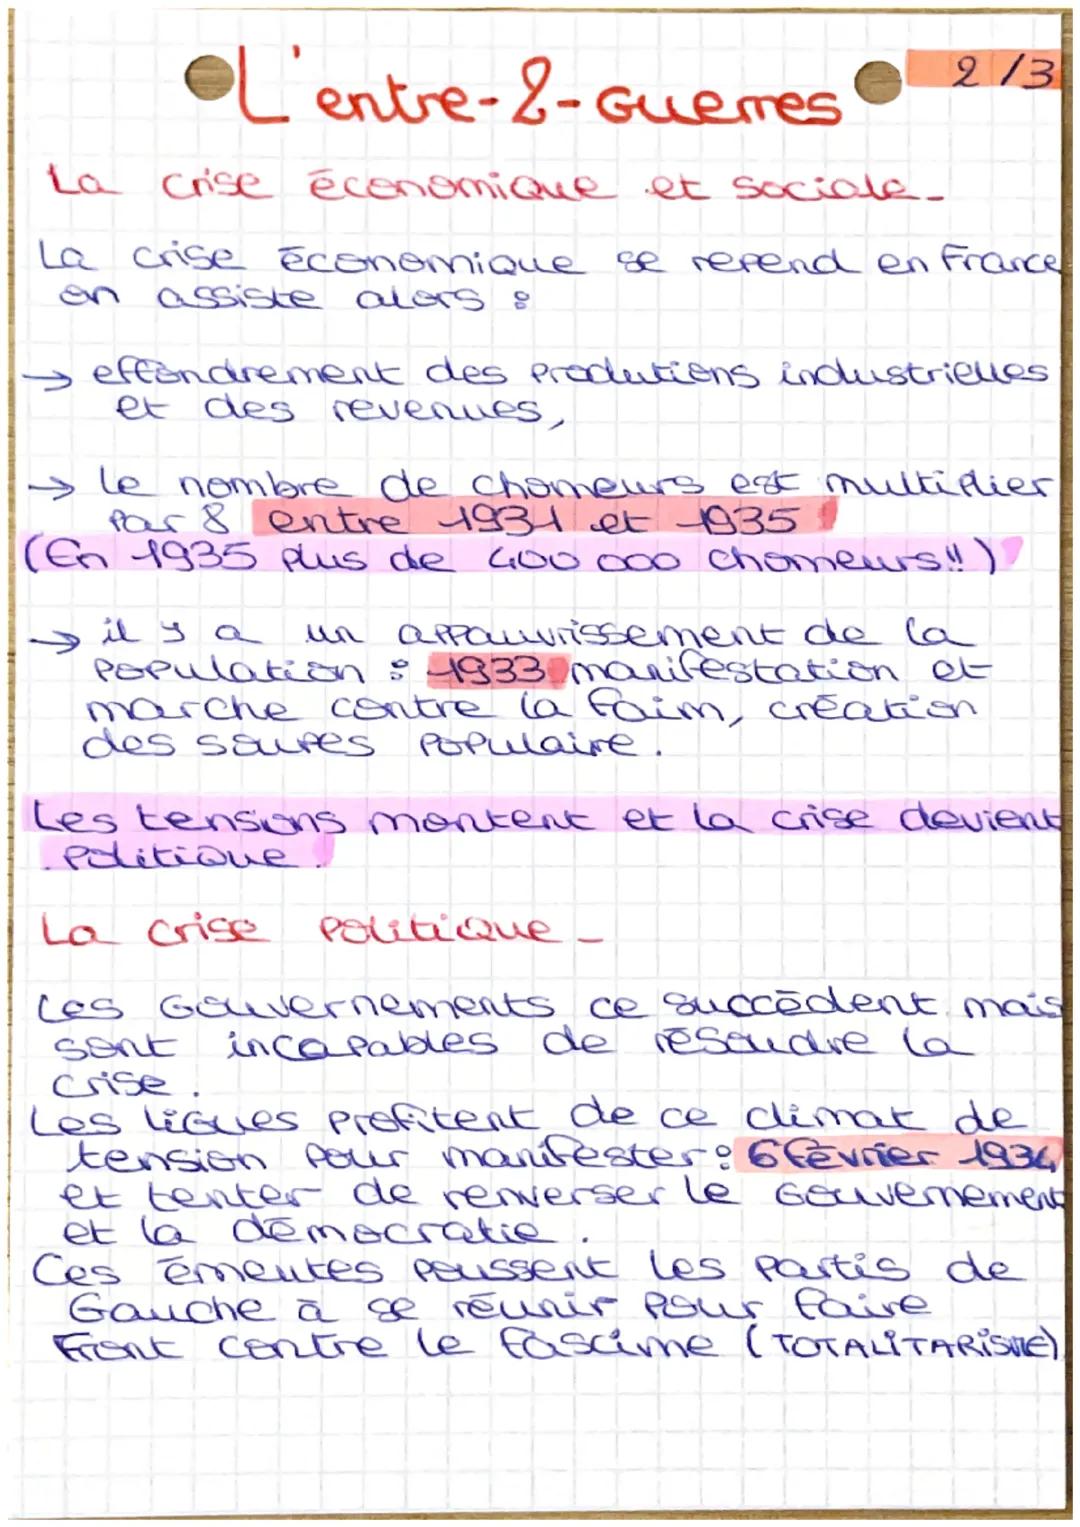 L'entre-2-Guerres
2/3
La crise économique et sociale-
La crise économique se repend en France
on assiste alors :
→ effondrement des produtions industrielles
et des revenues,
→ le nombre de chomeurs est multiplier
par 8 entre 1931 et 1935
(En 1935 plus de 400 000 chomeurs!!)
→ il y a un appauvrissement de la
population : 1933 manifestation et
marche contre la faim, création
des soupes populaire.
Les tensions montent et la crise devient
politique.
La crise politique-
Les Gouvernements ce succèdent mais
sont incapables de résoudre la
crise.
Les ligues profitent de ce climat de
tension pour manifester: 6 février 1934
et tenter de renverser le Gouvernement
et la démocratie.
Ces émeutes poussent les partis de
Gauche à se réunir pour faire
Front contre le fascime (TOTALITARISME)